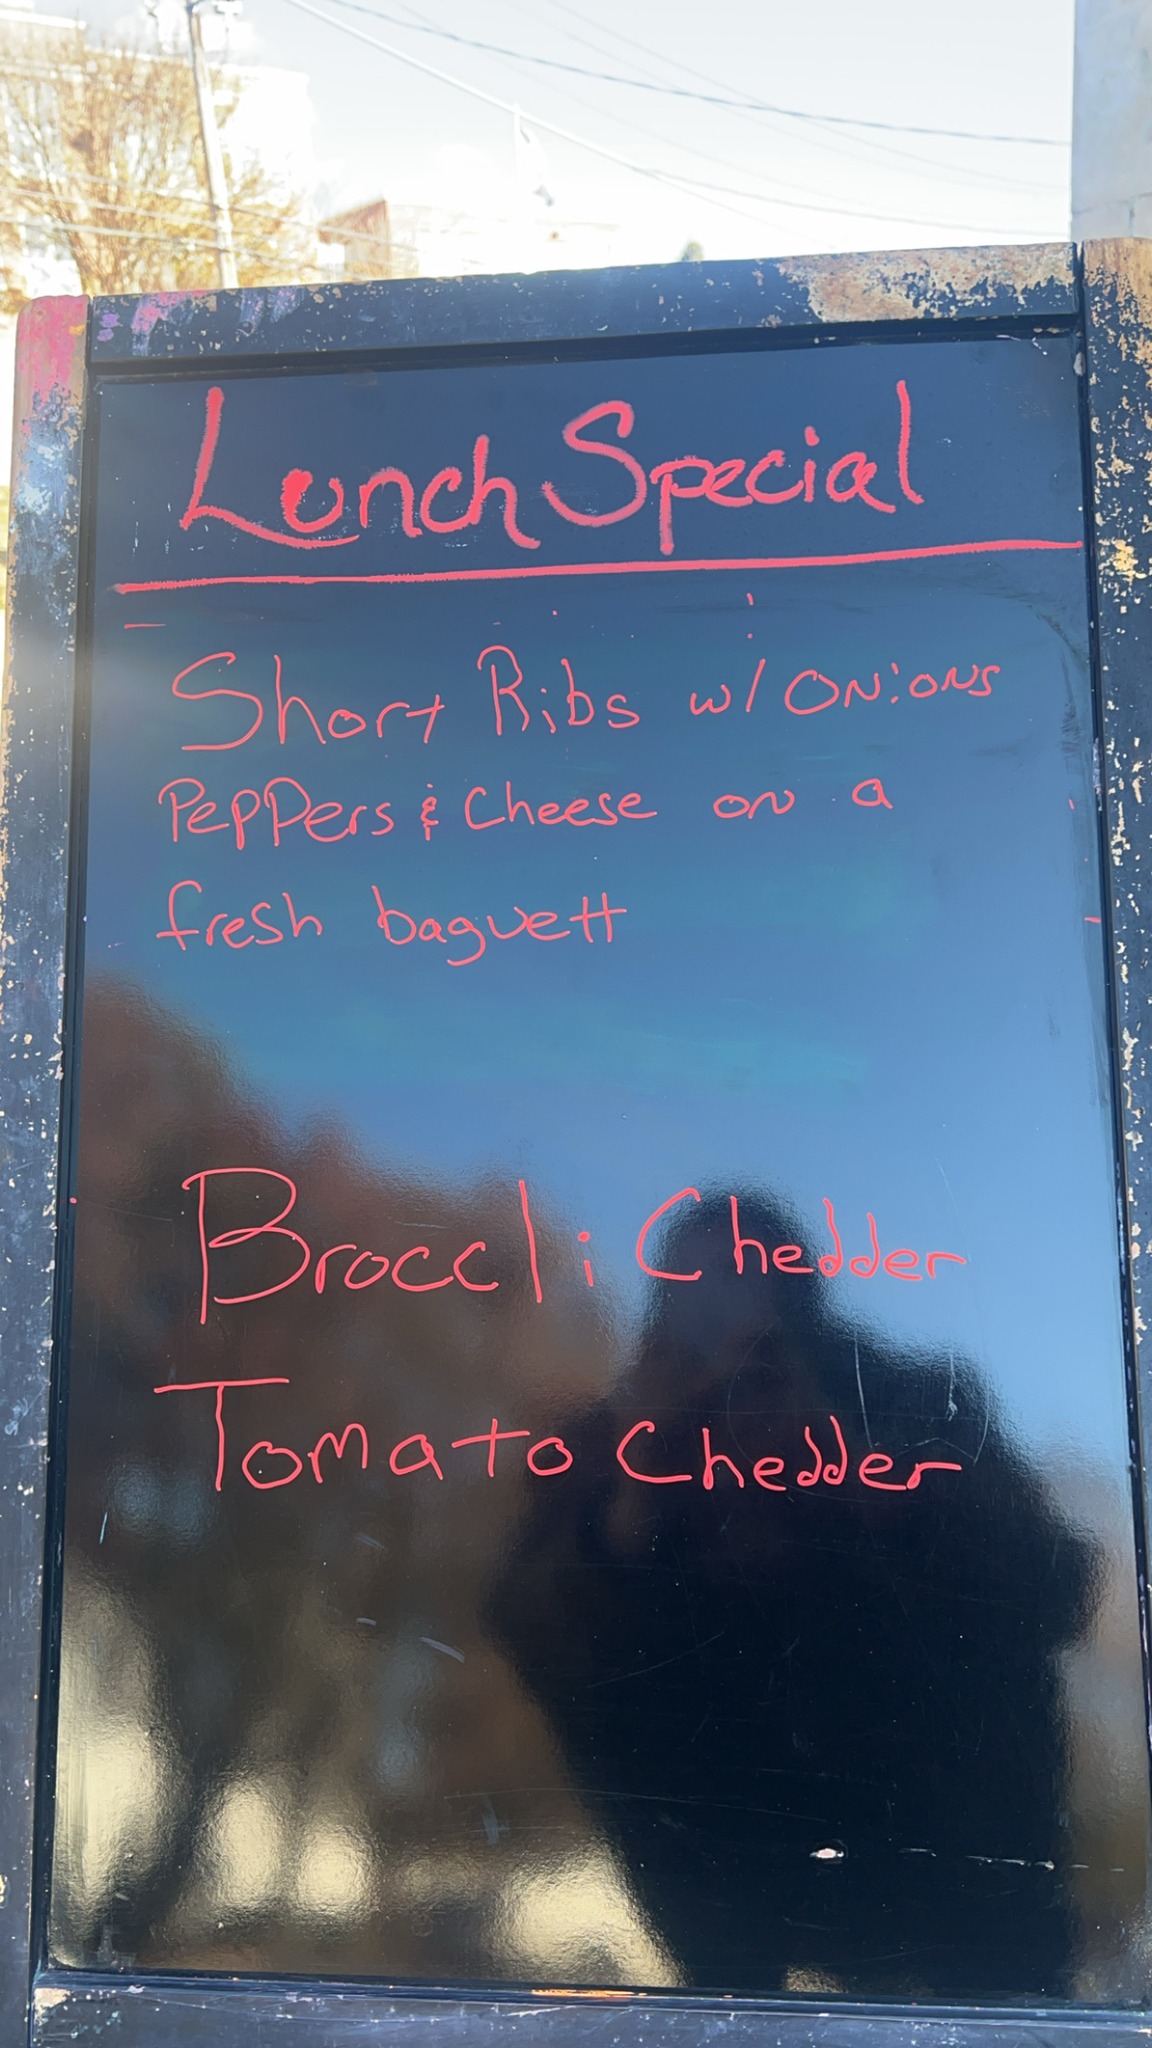 Lunch Special
Short Ribs w/ Onions
Peppers & Cheese on a
fresh baguett
Broccli Chedder
Tomato Chedder